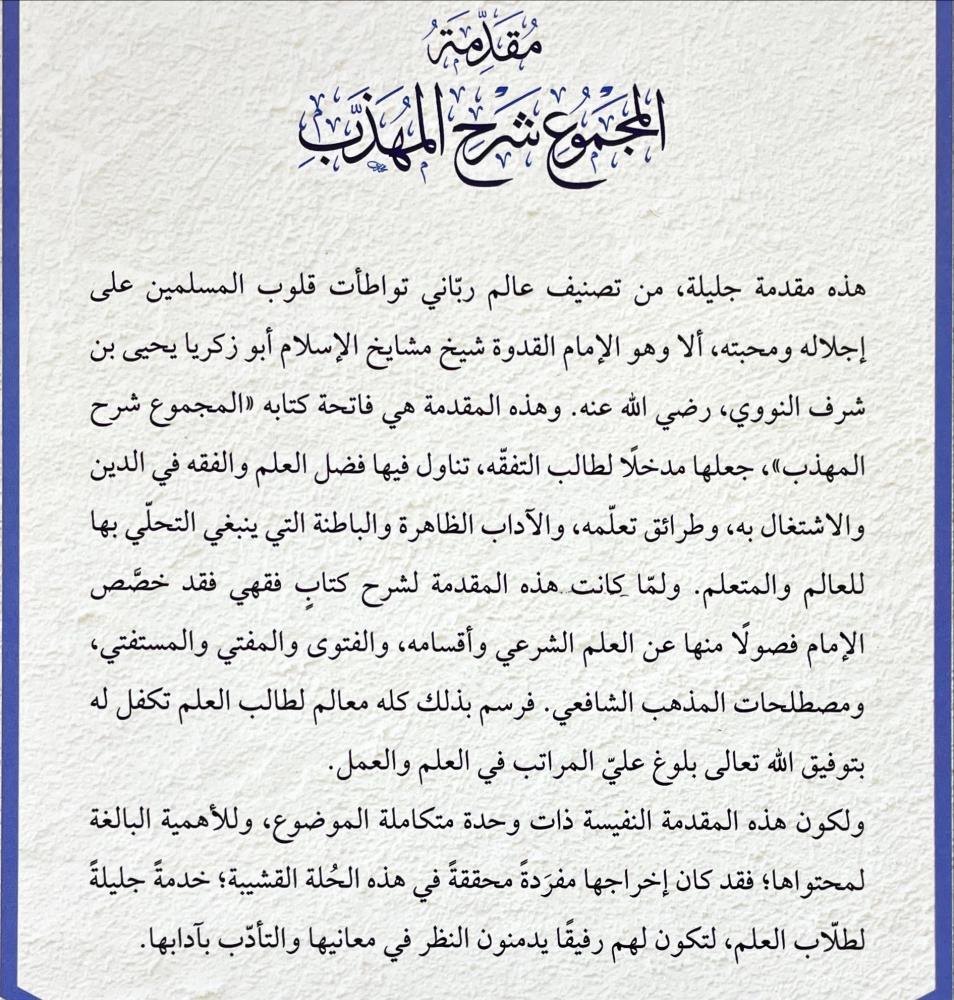 مُقَدِّمَةُ
المَجْمُوعِ شَرْحِ المُهَذَّبِ
هذه مقدمة جليلة، من تصنيف عالم ربّاني تواطأت قلوب المسلمين على
إجلاله ومحبته، ألا وهو الإمام القدوة شيخ مشايخ الإسلام أبو زكريا يحيى بن
شرف النووي، رضي الله عنه. وهذه المقدمة هي فاتحة كتابه «المجموع شرح
المهذب»، جعلها مدخلًا لطالب التفقّه، تناول فيها فضل العلم والفقه في الدين
والاشتغال به، وطرائق تعلّمه، والآداب الظاهرة والباطنة التي ينبغي التحلّي بها
للعالم والمتعلم. ولمّا كانت هذه المقدمة لشرح كتابٍ فقهي فقد خصَّص
الإمام فصولًا منها عن العلم الشرعي وأقسامه، والفتوى والمفتي والمستفتي،
ومصطلحات المذهب الشافعي. فرسم بذلك كله معالم لطالب العلم تكفل له
بتوفيق الله تعالى بلوغ عليّ المراتب في العلم والعمل.
ولكون هذه المقدمة النفيسة ذات وحدة متكاملة الموضوع، وللأهمية البالغة
لمحتواها؛ فقد كان إخراجها مفرَدةً محققةً في هذه الحُلة القشيبة؛ خدمةً جليلةً
لطلّاب العلم، لتكون لهم رفيقًا يدمنون النظر في معانيها والتأدّب بآدابها.